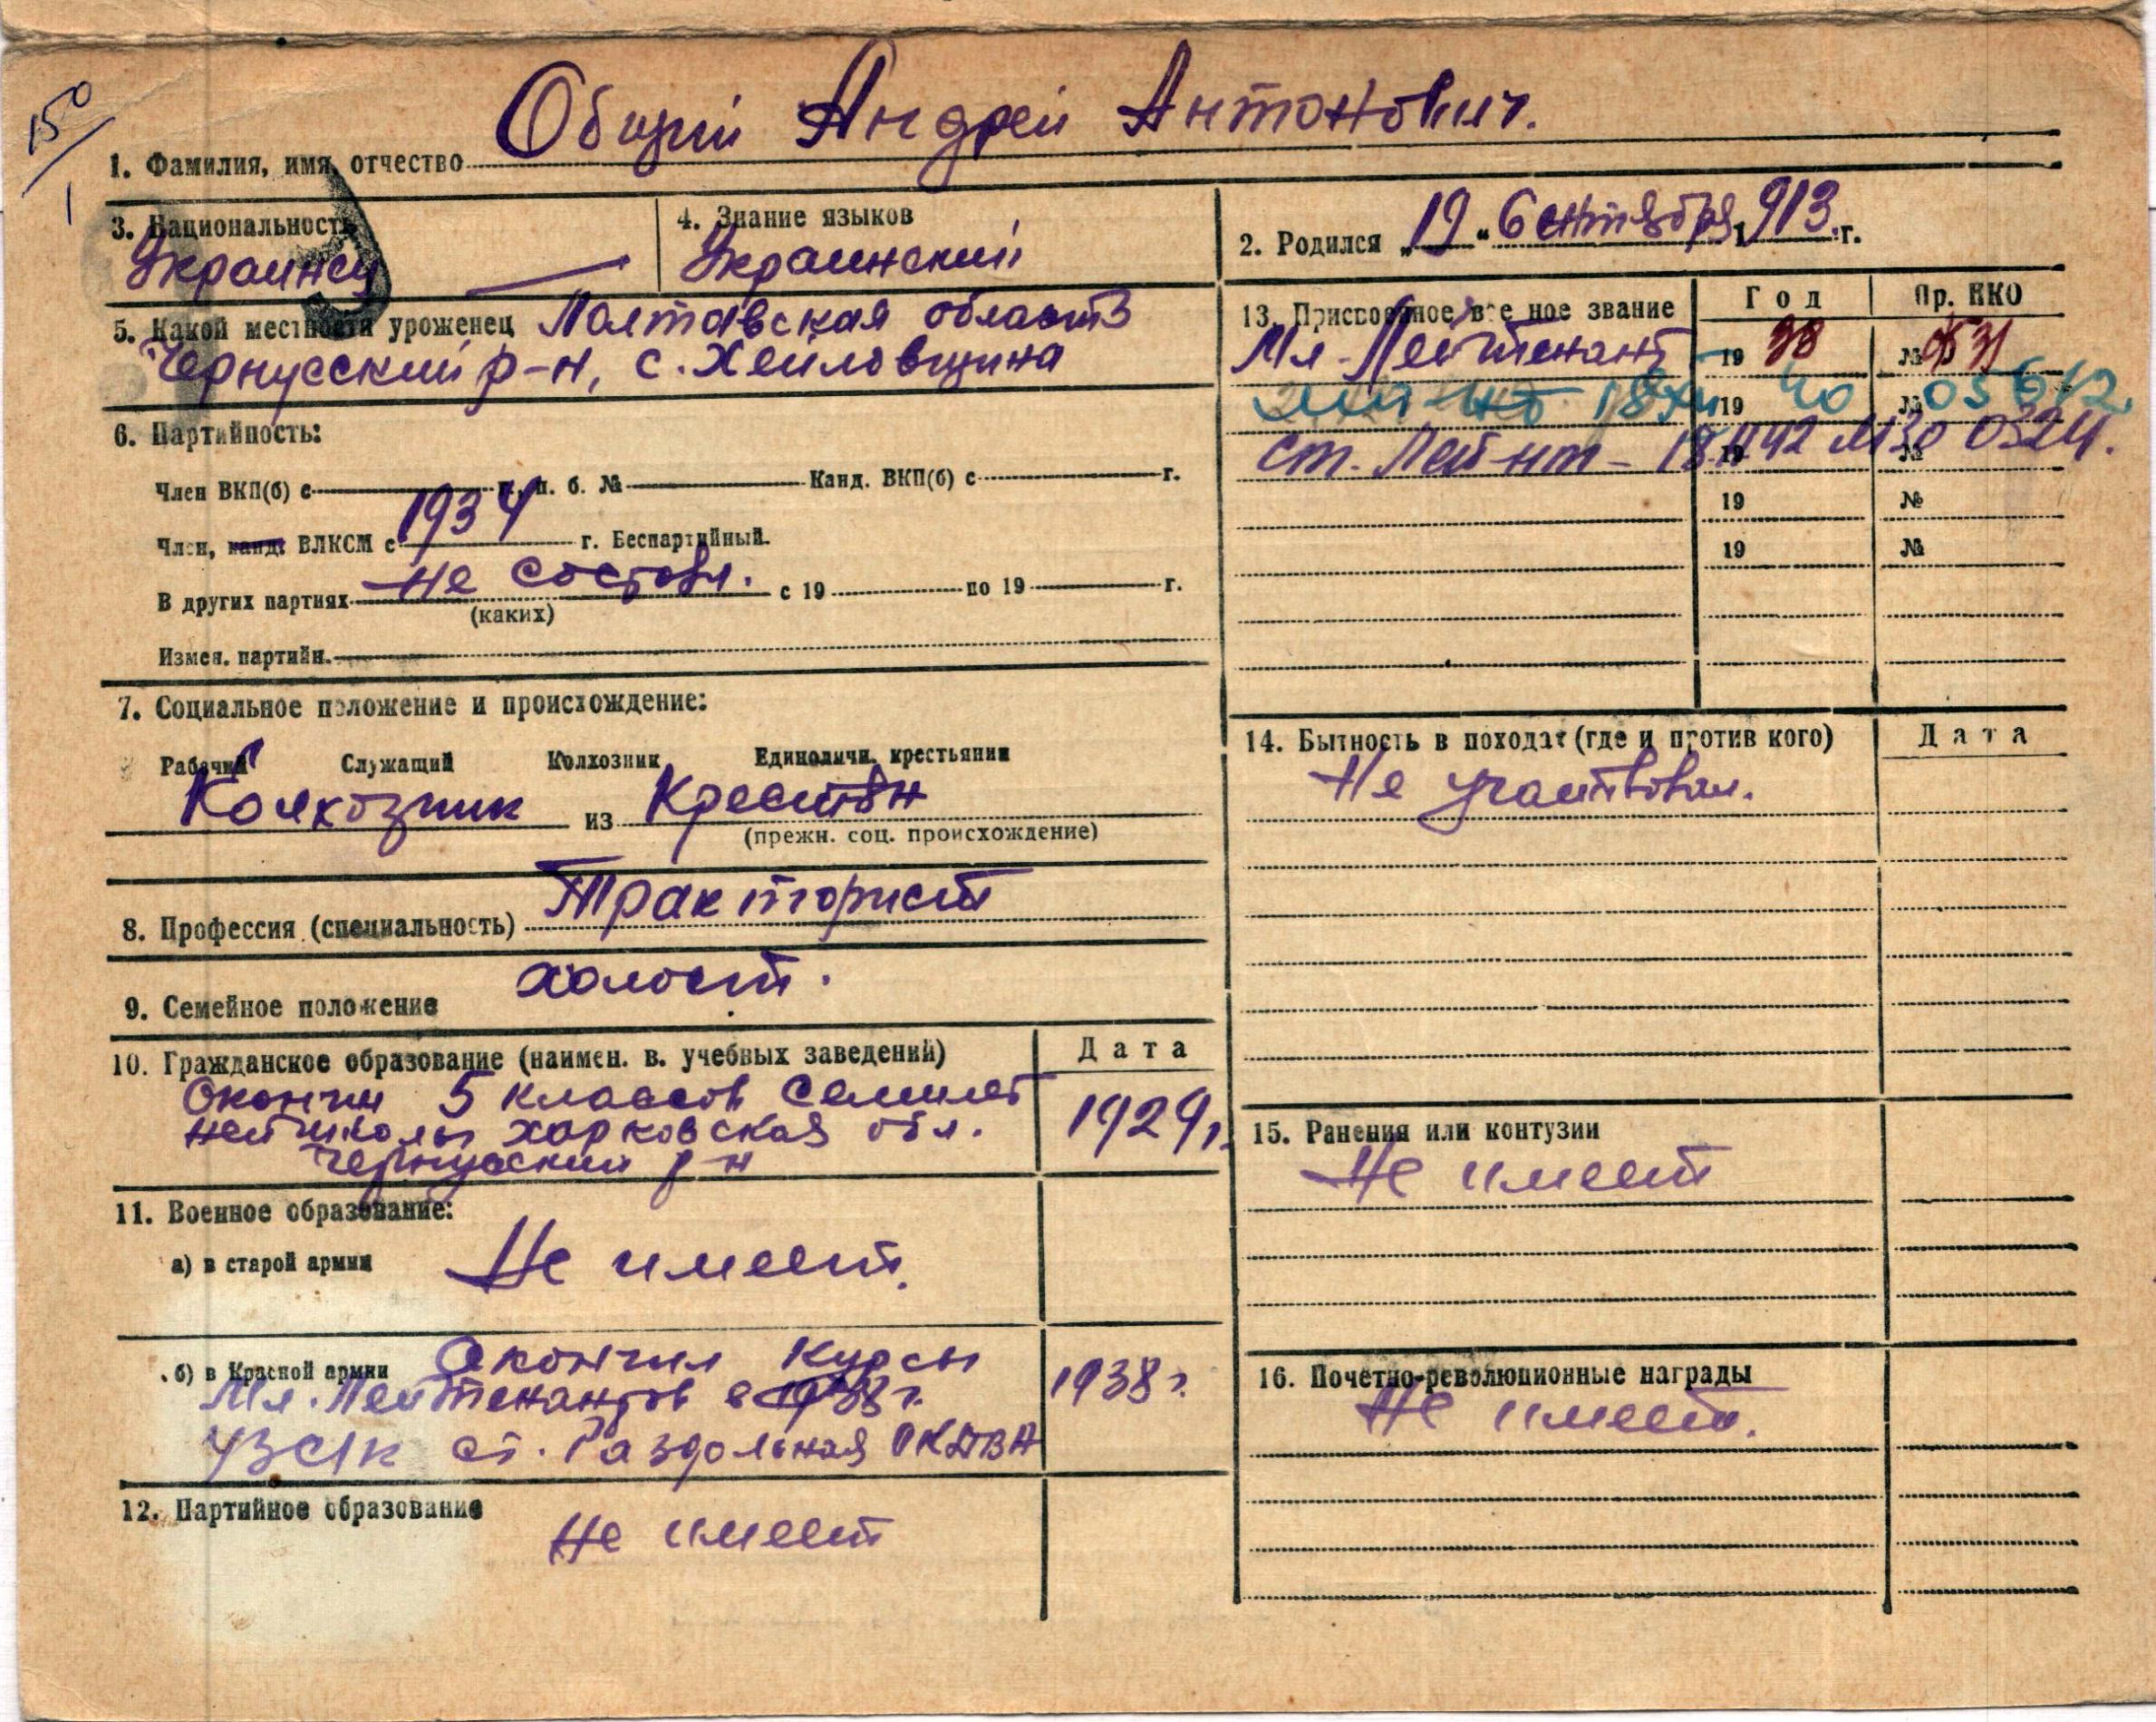 150
1
1. Фамилия, имя, отчество Общий Андрей Антонович.
3. Национальность
Украинец
4. Знание языков
Украинский
2. Родился „19“ Сентября 1913 г.
5. Какой местности уроженец Полтавская область
Чернусский р-н, с. Хейловщина
6. Партийность:
Член ВКП(б) с г. п. б. № Канд. ВКП(б) с г.
Член, канд. ВЛКСМ с 1934 г. Беспартийный.
В других партиях Не состоял. с 19 по 19 г.
(каких)
Измен. партийн.
7. Социальное положение и происхождение:
Рабочий Служащий Колхозник Единоличн. крестьянин
Колхозник из Крестьян
(прежн. соц. происхождение)
8. Профессия (специальность) Тракторист
9. Семейное положение холост.
10. Гражданское образование (наимен. в. учебных заведений) Дата
Окончил 5 классов Семилет
ней школы Харковская обл. 1929 г.
Чернусский р-н
11. Военное образование:
а) в старой армии Не имеет.
б) в Красной армии Окончил Курсы 1938 г.
Мл. Лейтенантов в 1938 г.
ст. Раздольная ОКДВА
12. Партийное образование Не имеет
13. Присвоенное военное звание Год Пр. НКО
Мл-Лейтенант 19 38 №
18 XII 19 40 № 05612
Ст. Лейт-нт - 18 42 0324.
19 №
19 №
14. Бытность в походах (где и против кого) Дата
Не участвовал.
15. Ранения или контузии
Не имеет
16. Почетно-революционные награды
Не имеет.